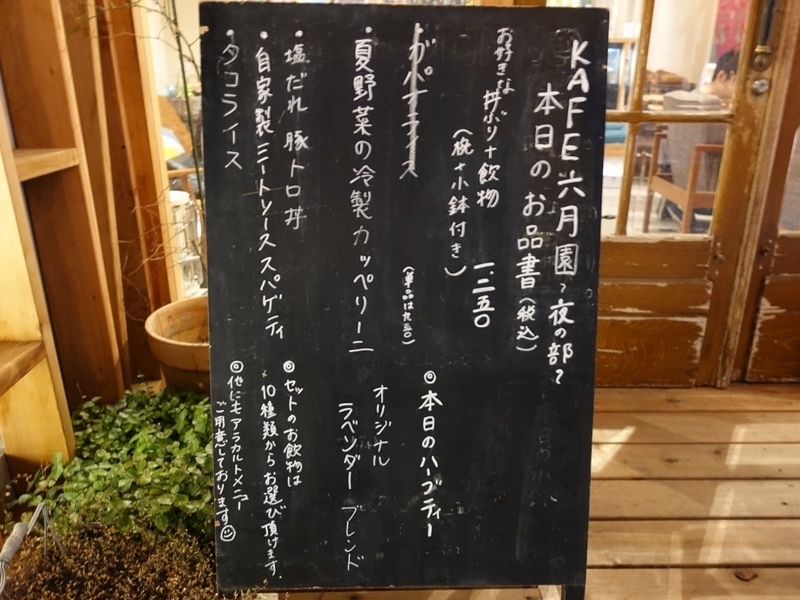 KAFE 六月園 ~夜の部~
本日のお品書(税込)
お好きな丼ぶり+飲物 一、二五〇
(椀+小鉢付き)
(単品は九五〇)
ガパオライス
夏野菜の冷製カッペリーニ
・塩だれ豚トロ丼
・自家製ミートソーススパゲティ
・タコライス
◎本日のハーブティー
オリジナル
ラベンダーブレンド
◎セットのお飲物は
10種類からお選び頂けます.
◎他にもアラカルトメニュー
ご用意しております☺